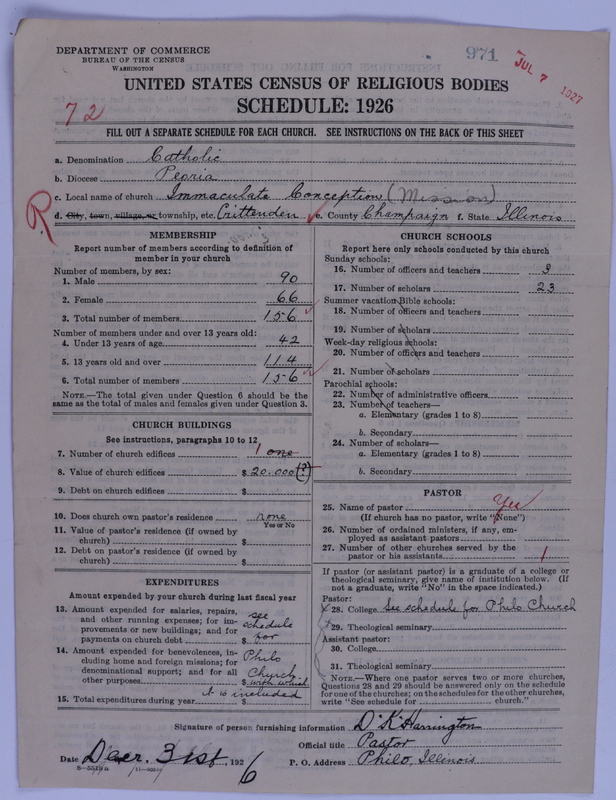 DEPARTMENT OF COMMERCE
BUREAU OF THE CENSUS
WASHINGTON
971
JUL 7 1927
UNITED STATES CENSUS OF RELIGIOUS BODIES
SCHEDULE: 1926
72
FILL OUT A SEPARATE SCHEDULE FOR EACH CHURCH. SEE INSTRUCTIONS ON THE BACK OF THIS SHEET
a. Denomination Catholic
b. Diocese Peoria
c. Local name of church Immaculate Conception (Mission)
R
d. City, town, village, or township, etc. Crittenden e. County Champaign f. State Illinois
MEMBERSHIP
Report number of members according to definition of
member in your church
Number of members, by sex:
1. Male 90
2. Female 66
3. Total number of members 156
Number of members under and over 13 years old:
4. Under 13 years of age 42
5. 13 years old and over 114
6. Total number of members 156
NOTE.—The total given under Question 6 should be the
same as the total of males and females given under Question 3.
CHURCH BUILDINGS
See instructions, paragraphs 10 to 12
7. Number of church edifices 1 one
8. Value of church edifices $ 20.000 (?)
9. Debt on church edifices $
10. Does church own pastor's residence none
Yes or No
11. Value of pastor's residence (if owned by
church) $
12. Debt on pastor's residence (if owned by
church) $
EXPENDITURES
Amount expended by your church during last fiscal year
13. Amount expended for salaries, repairs,
and other running expenses; for im-
provements or new buildings; and for
payments on church debt $ see schedule for
14. Amount expended for benevolences, in-
cluding home and foreign missions; for
denominational support; and for all
other purposes $ Philo Church with which
it is included
15. Total expenditures during year $
CHURCH SCHOOLS
Report here only schools conducted by this church
Sunday schools:
16. Number of officers and teachers 3
17. Number of scholars 23
Summer vacation Bible schools:
18. Number of officers and teachers
19. Number of scholars
Week-day religious schools:
20. Number of officers and teachers
21. Number of scholars
Parochial schools:
22. Number of administrative officers
23. Number of teachers—
a. Elementary (grades 1 to 8)
b. Secondary
24. Number of scholars—
a. Elementary (grades 1 to 8)
b. Secondary
PASTOR
25. Name of pastor Yes
(If church has no pastor, write "None")
26. Number of ordained ministers, if any, em-
ployed as assistant pastors
27. Number of other churches served by the
pastor or his assistants 1
If pastor (or assistant pastor) is a graduate of a college or
theological seminary, give name of institution below. (If
not a graduate, write "No" in the space indicated.)
Pastor:
28. College See schedule for Philo Church
29. Theological seminary
Assistant pastor:
30. College
31. Theological seminary
NOTE.—Where one pastor serves two or more churches,
Questions 28 and 29 should be answered only on the schedule
for one of the churches; on the schedules for the other churches,
write "See schedule for church."
Signature of person furnishing information D. K. Harrington
Official title Pastor
Date Decr. 31st, 1926 P. O. Address Philo, Illinois